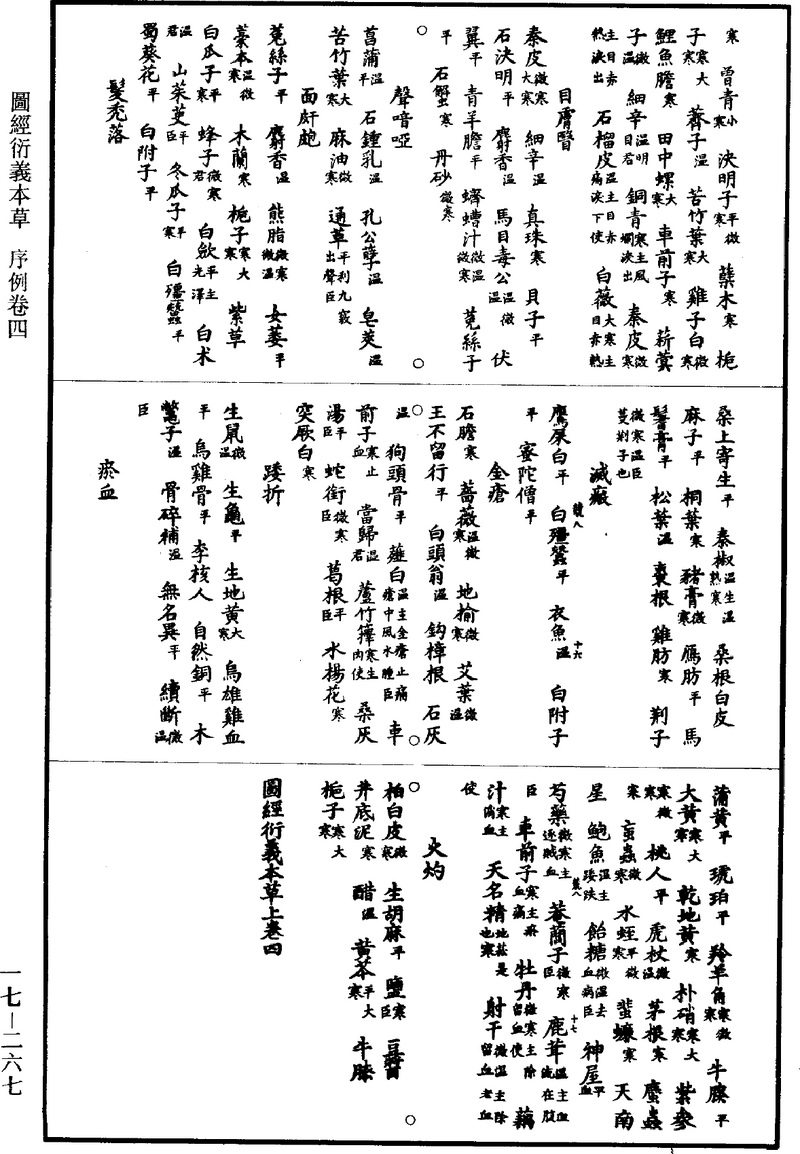 圖經衍義本草　序例卷四
一七—二六七
寒　曾青小寒　決明子平微寒　蘗木寒　梔
子寒大寒　薺子温　苦竹葉大寒　雞子白微寒
鯉魚膽寒　田中螺大寒　車前子寒　菥蓂
子微温　細辛温明目君　銅青寒主風爛淚出　秦皮微寒
主目赤熱淚出　石榴皮温主目赤痛淚下使　白薇大寒主目赤熱
目膚瞖
秦皮微寒大寒　細辛温　真珠寒　貝子平
石決明平　麝香温　馬目毒公温微温　伏
翼平　青羊膽平　蠐螬汁微温微寒　菟絲子
平　石蟹寒　丹砂微寒
聲喑啞
菖蒲温平　石鍾乳温　孔公孽温　皂莢温
苦竹葉大寒　麻油微寒　通草平利九竅出聲臣
面皯皰
菟絲子平　麝香温　熊脂微寒微温　女萎平
藁本温微寒　木蘭寒　梔子寒大寒　紫草
白瓜子平寒　蜂子微寒君　白斂平主光澤　白朮
温君　山茱萸平臣　冬瓜子平寒　白殭蠶平
蜀葵花平　白附子平
髮禿落
桑上寄生平　秦椒温生温熟寒　桑根白皮
麻子平　桐葉寒　豬膏微寒　鴈肪平　馬
鬐膏平　松葉温　棗根　雞肪寒　荊子
微寒温臣蔓荊子也
滅瘢
鷹屎白平　白殭蠶平　衣魚温　白附子
平　蜜陀僧平
金瘡
石膽寒　薔薇温微寒　地榆微寒　艾葉微温
王不留行平　白頭翁温　鈎樟根　石灰
温　狗頭骨平　薤白温主金瘡止痛瘡中風水腫臣　車
前子寒止血　當歸温君　蘆竹籜寒生肉使　桑灰
湯平臣　蛇銜微寒臣　葛根平臣　水楊花寒
突厥白寒
踒折
生鼠微温　生龜平　生地黃大寒　烏雄雞血
平　烏雞骨平　李核人　自然銅平　木
鼈子温　骨碎補温　無名異平　續斷微温
臣
瘀血
蒲黃平　琥珀平　羚羊角寒微寒　牛膝平
大黃寒大寒　乾地黃寒　朴硝寒大寒　紫參
寒微寒　桃人平　虎杖微温　茅根寒　䗪蟲
寒　䖟蟲微寒　水蛭平微寒　蜚蠊寒　天南
星　鮑魚温主踒跌　飴糖微温去血病臣　神屋平血
芍藥微寒主逐賊血　菴䕡子微寒臣　鹿茸温主血流在腹
臣　車前子寒主瘀血痛　牡丹微寒主除留血使　藕
汁寒主消血　天名精地菘是也寒　射干微温主除留血老血
使
火灼
柏白皮微寒　生胡麻平　鹽寒臣　豆醬
井底泥寒　醋温　黃芩平大寒　牛膝
梔子寒大寒
圖經衍義本草上卷四